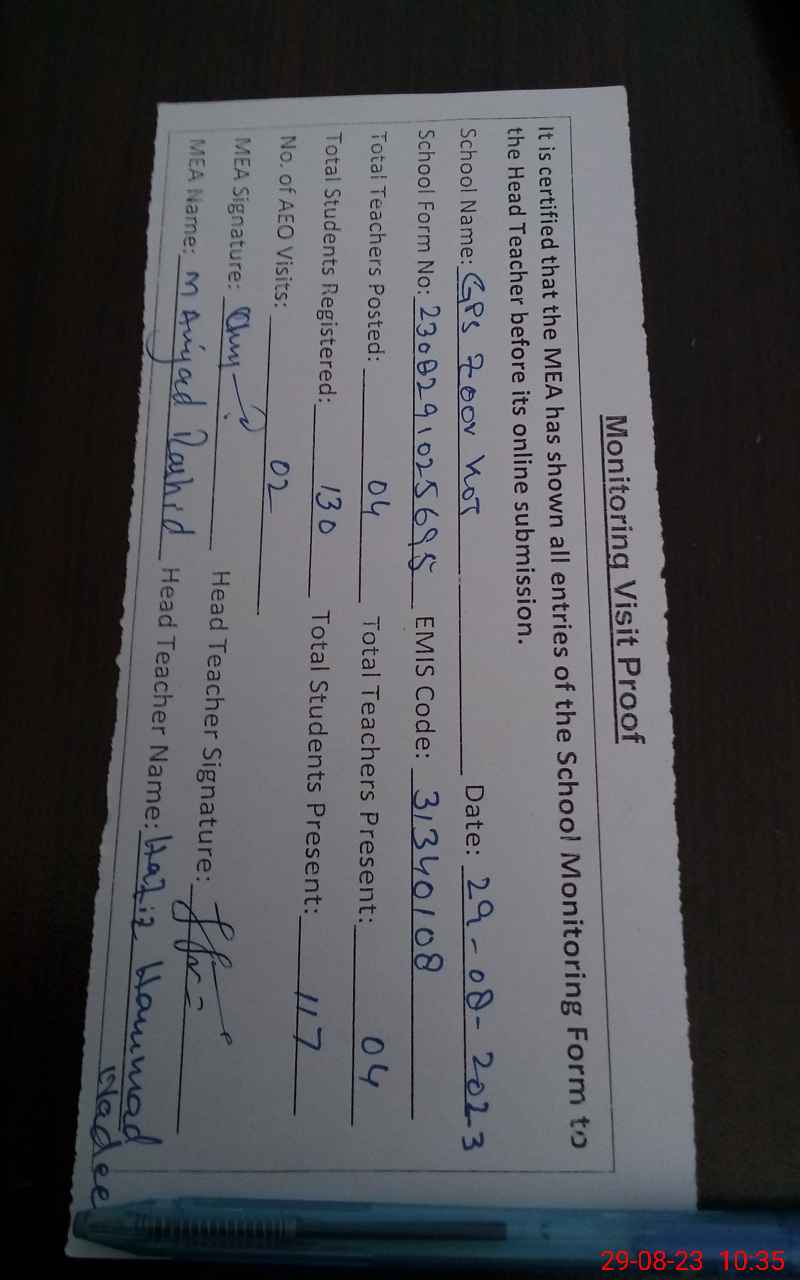 Monitoring Visit Proof
It is certified that the MEA has shown all entries of the School Monitoring Form to
the Head Teacher before its online submission.
School Name: GPS Zoor Kot Date: 29-08-2023
School Form No: 2308291025695 EMIS Code: 31340108
Total Teachers Posted: 04 Total Teachers Present: 04
Total Students Registered: 130 Total Students Present: 117
No. of AEO Visits: 02
MEA Signature: Head Teacher Signature:
MEA Name: M Amjad Rashid Head Teacher Name: Hafiz Hammad
Nadee
29-08-23 10:35